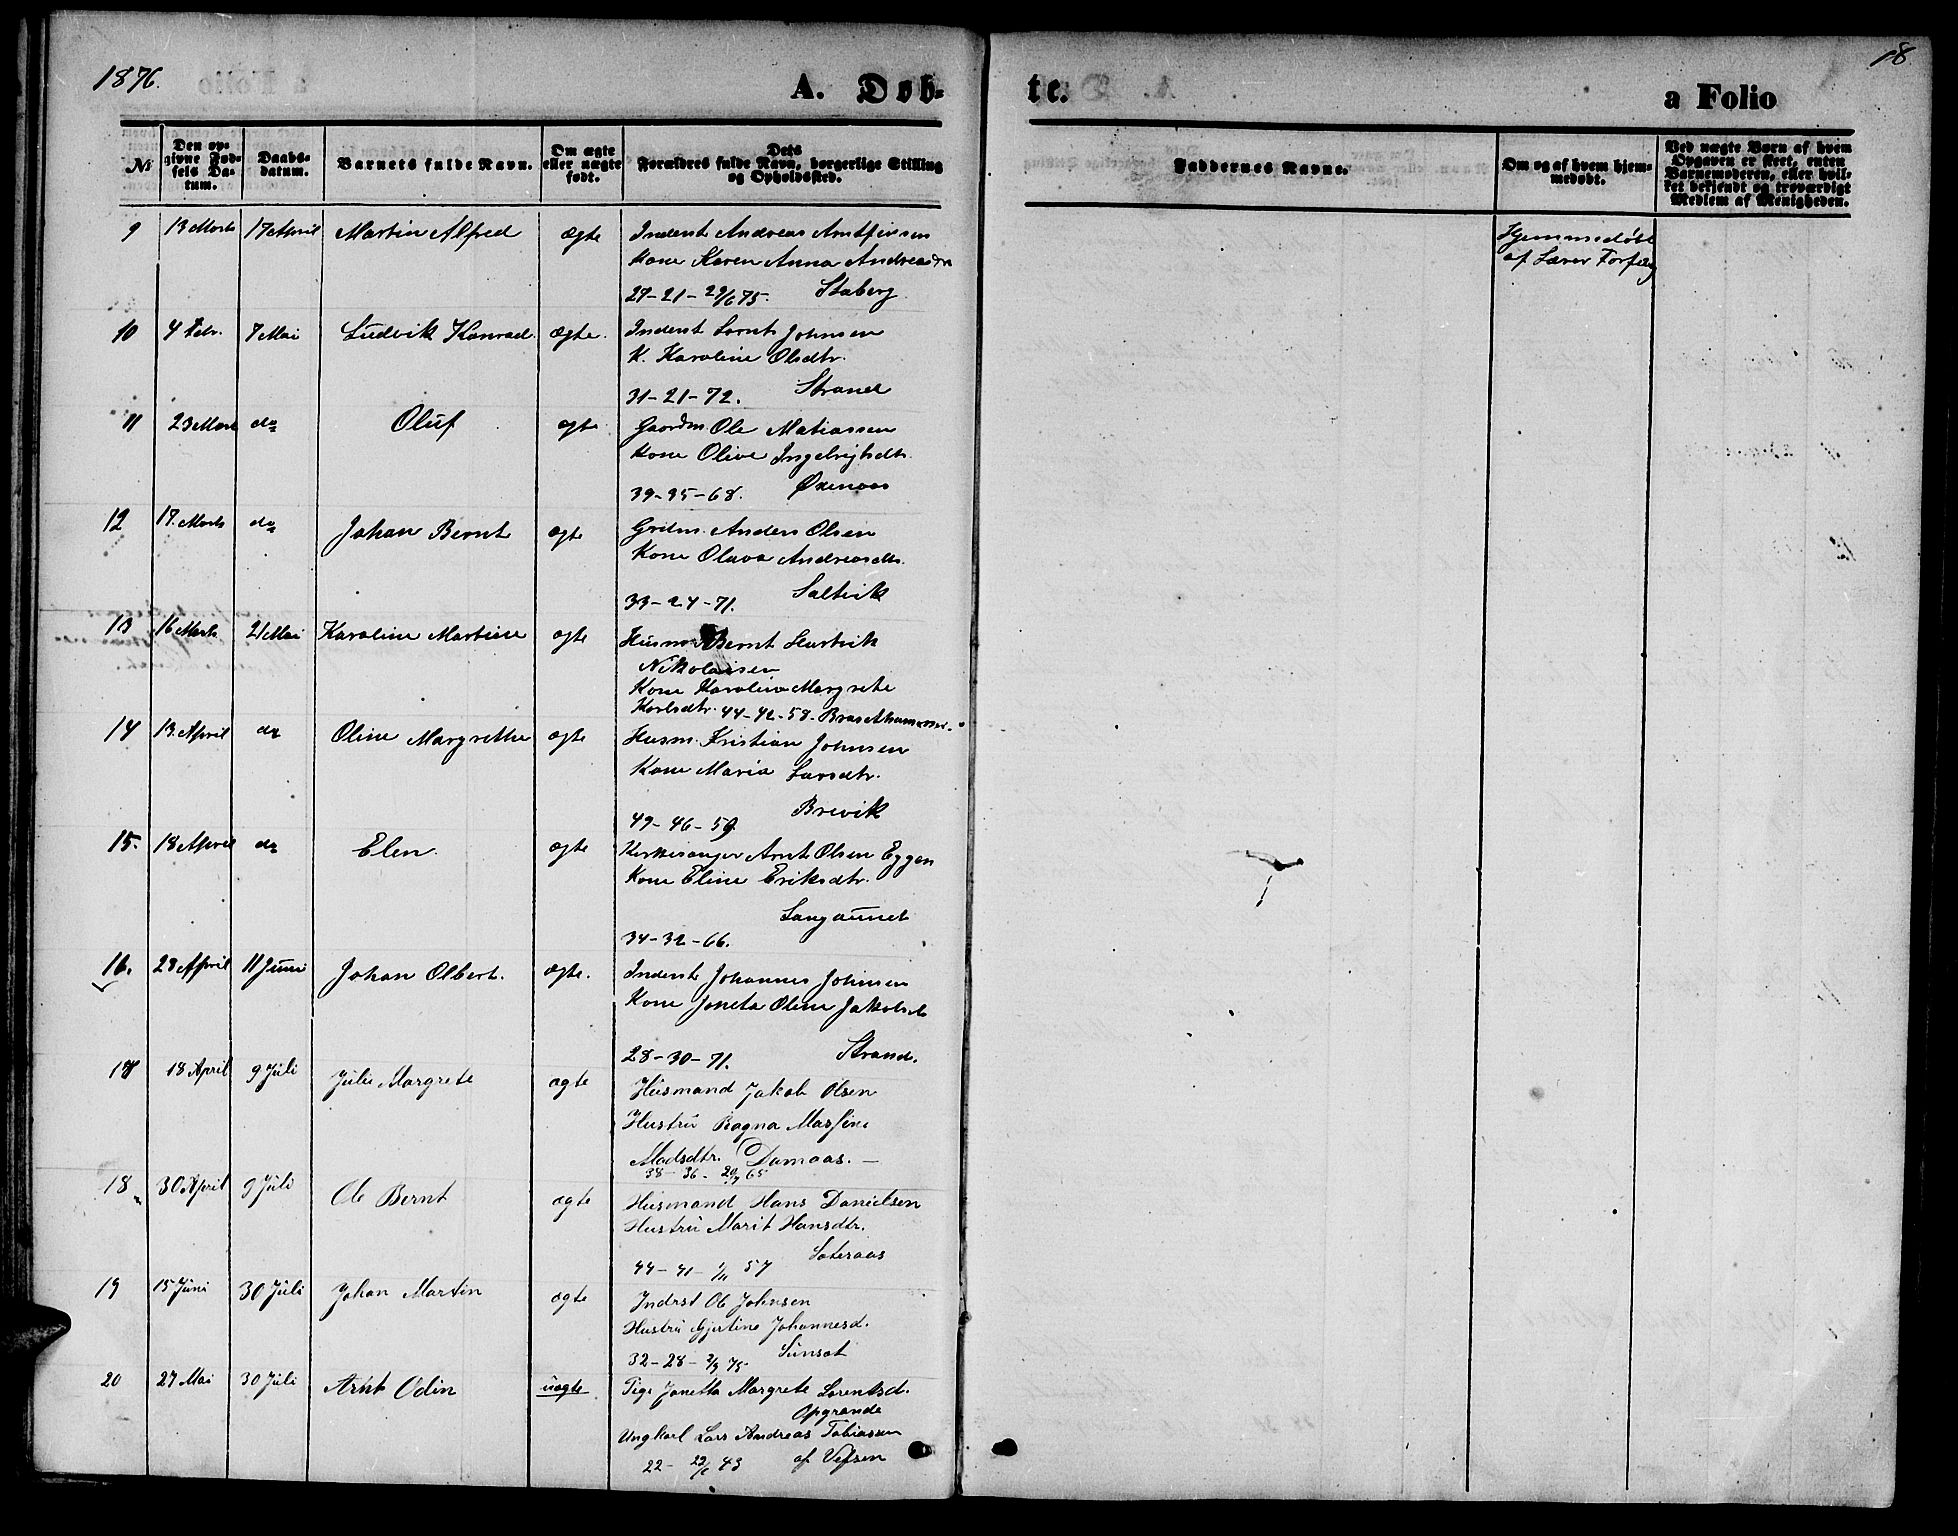 1876.
A. Døb-
te.
a Folio
18
No
Den op-
givne Fød-
sels Da-
tum.
Daabs-
datum.
Barnets fulde Navn.
Om ægte
eller uægte
født.
Dets
Forældres fulde Navn, borgerlige Stilling
og Opholdssted.
Faddernes Navne.
Om og af hvem hjem-
medøbt.
Ved uægte Børn af hvem
Opgaven er skeet, enten
Barnemoderen, eller hvil-
ket bekjendt og troværdigt
Medlem af Menigheden.
9 13 Marts 17 April Martin Alfred Ægte Inderst Andreas Arntsinsen
Kone Karen Anna Andreasdtr
27-21-29/6 75. Staberg
Hjemmedøbt
af Lærer Forfang
10 4 Febr. 7 Mai Ludvik Konrad Ægte. Inderst Bernt Johnsen
K. Karoline Olsdtr.
31-21-72. Strand
11 23 Marts do Oluf ægte Gaardm. Ole Matiassen
Kone Oline Ingebrigtsdtr.
39-35-68. Oxenaas
12 17. Marts do Johan Bernt ægte Grdm. Anders Olsen
Kone Olava Andreasdtr.
33-24-71. Saltvik
13 16 Marts 21 Mai Karoline Martine ægte Husm Bernt Hartvik
Nikolaisen
Kone Karoline Margrete
Karlsdtr. 44-42-58-
14 13. April do Oline Margrethe ægte Husm. Kristian Johnsen
Kone Maria Larsdtr.
49-46-59 Brevik
15. 18 April do Elen ægte Kirkesanger Arnt Olsen Eggen
Kone Eline Eriksdtr.
Langaunet
34-32-66.
16. 28 April 11 Juni Johan Olbert. ægte. Inderst Johannes Johnsen
Kone Joneta Oline Jakobsdt
28-30-71. Strand.
17 18 April 9 Juli Julie Margrete ægte Husmand Jakob Olsen
Hustru Ragna Massine
Madsdtr. Damaas. —
38-36-20/7 65
18 30 April 9 Juli Ole Bernt ægte Husmand Hans Danielsen
Hustru Marit Hansdtr.
Sateraas
44-41- 57
19 15 Juni 30 Juli Johan Martin ægte Indrst Ole Johnsen
Hustru Gjertine Johannesd.
32-28- 75 Sunset
20 27 Mai 30 Juli Arnt Odin uægte Pige Janetta Margrete Lorentsd.
Opgrande
Ungkarl Lars Andreas Tobiassen
22- 43 af Vefsen